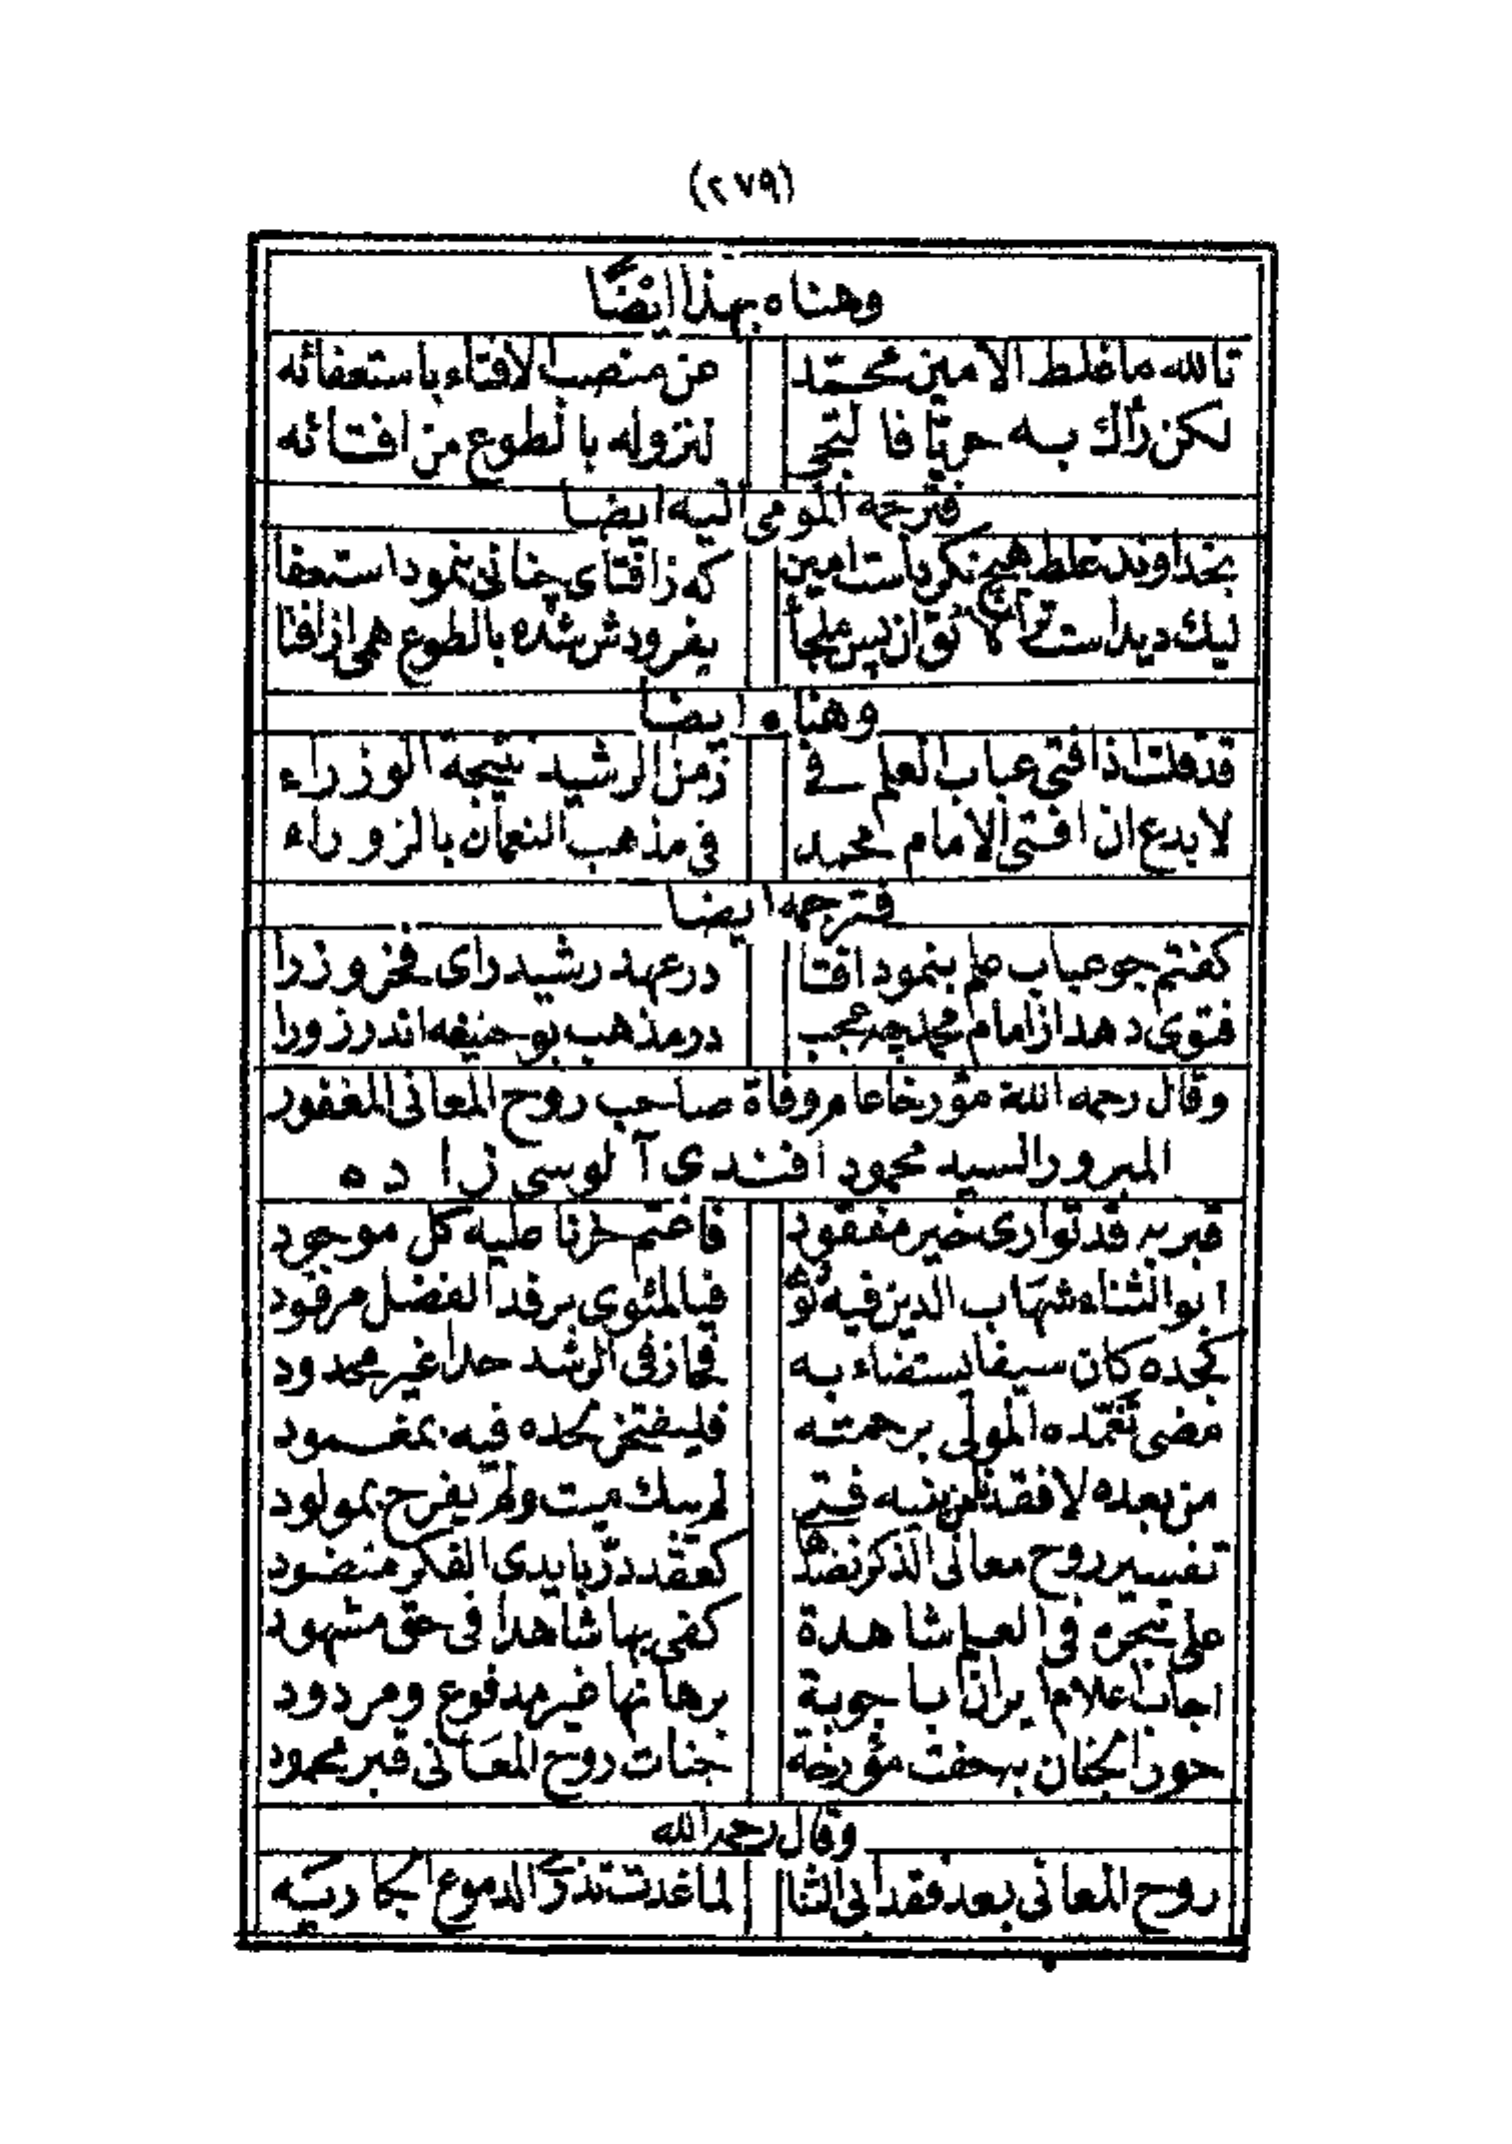 (٢٧٩)
وهناه بهذا ايضًا
تالله ما غلط الامين محمّد عن منصب الافتاء باستعفائه
لكن رأك به حريّا فالتجى لنزوله بالطوع من افتائه
فترجمه المومى اليه ايضا
بخداوند غلط هيچ نكرداست امين كه زافتاى چنانى بنمود استعفا
ليك ديداست ترا توان پس ملجأ بفرودش شده بالطوع همى ازافتا
وهناه ايضا
قد قلت اذ افتى عباب العلم فى زمن الرشيد نتيجة الوزراء
لا بدع ان افتى الامام محمد فى مذهب النعمان بالزوراء
فترجمه ايضا
كفتم جو عباب علم بنمود افتا در عهد رشيد راى فخر وزرا
فتوى دهد ازامام محمد چه عجب در مذهب بوحنيفه اندر زورا
وقال رحمه الله مؤرخا عام وفاة صاحب روح المعانى المغفور
المبرور السيد محمود افندى آلوسى زاده
قبر به قد توارى خير مفقود فاغتم حزنا عليه كل موجود
ابو الثناء شهاب الدين فيه ثوى فيا لمثوى برفد الفضل مرفود
كجده كان سيفا يستضاء به فحاز فى الرشد حدا غير محدود
مضى تغمّده المولى برحمته فليفتخر لحده فيه بمغمود
من بعده لا فقدنا من بنيه فتى لم يبك ميت ولم يفرح بمولود
تفسير روح معانى الذكر نضّد كعقد درّ بايدى الفكر منضود
على تبحره فى العلم شاهدة كفى بها شاهدا فى حق مشهود
اجاب اعلام ايران باجوبة برهانها غير مدفوع ومردود
حور الجنان به حفت مؤرخة جنات روح المعانى قبر محمود
وقال رحمه الله
روح المعانى بعد فقد ابى الثنا لما غدت تذرى الدموع الجاريه